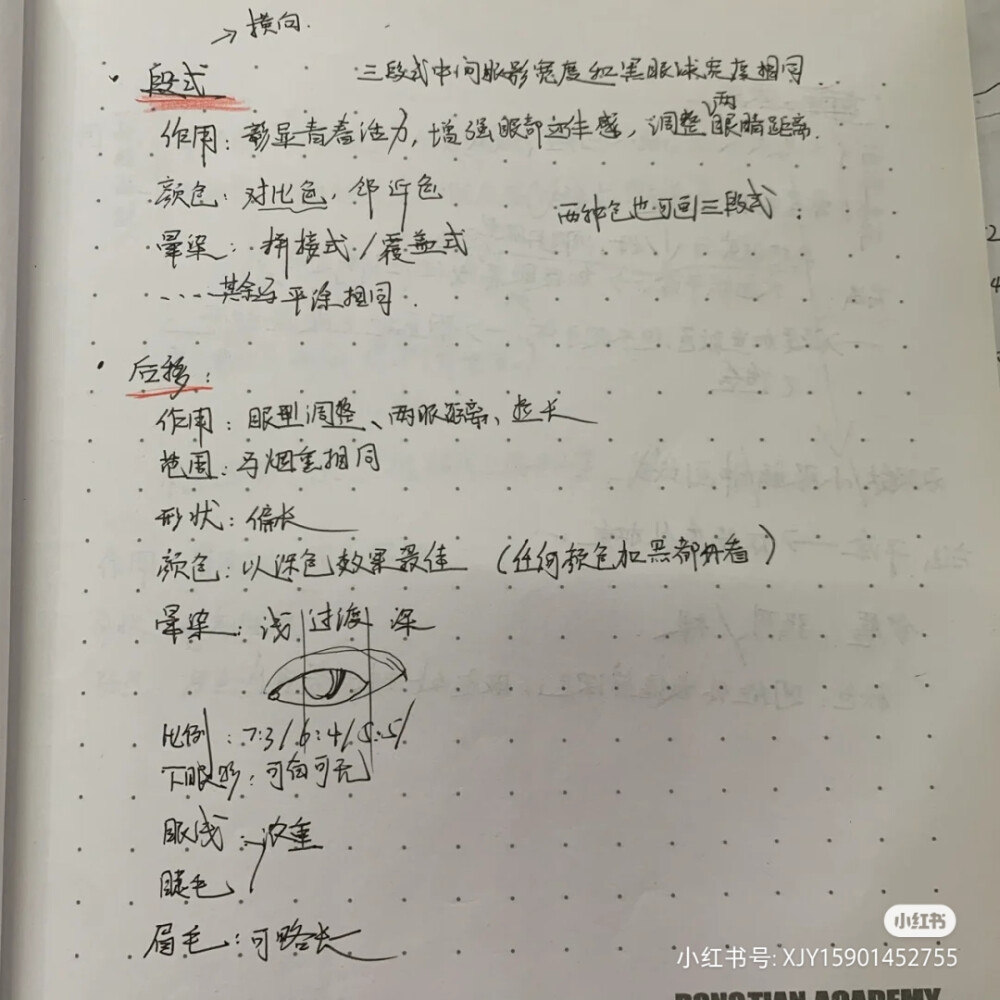 →横向.
段式
三段式中间眼影宽度和黑眼球宽度相同
作用:彰显青春活力,增强眼部立体感,调整两眼睛距离.
颜色:对比色,邻近色
两种色也可画三段式.
晕染:拼接式/覆盖式
....其余与平涂相同.
后移:
作用:眼型调整、两眼距离、拉长
范围:与烟熏相同
形状:偏长
颜色:以深色效果最佳 (任何颜色加黑都好看)
晕染:浅 过渡 深
比例:7:3/6:4/5:5/
下眼影:可有可无
眼线:浓重
睫毛
眉毛:可略长
小红书
小红书号:XJY15901452755